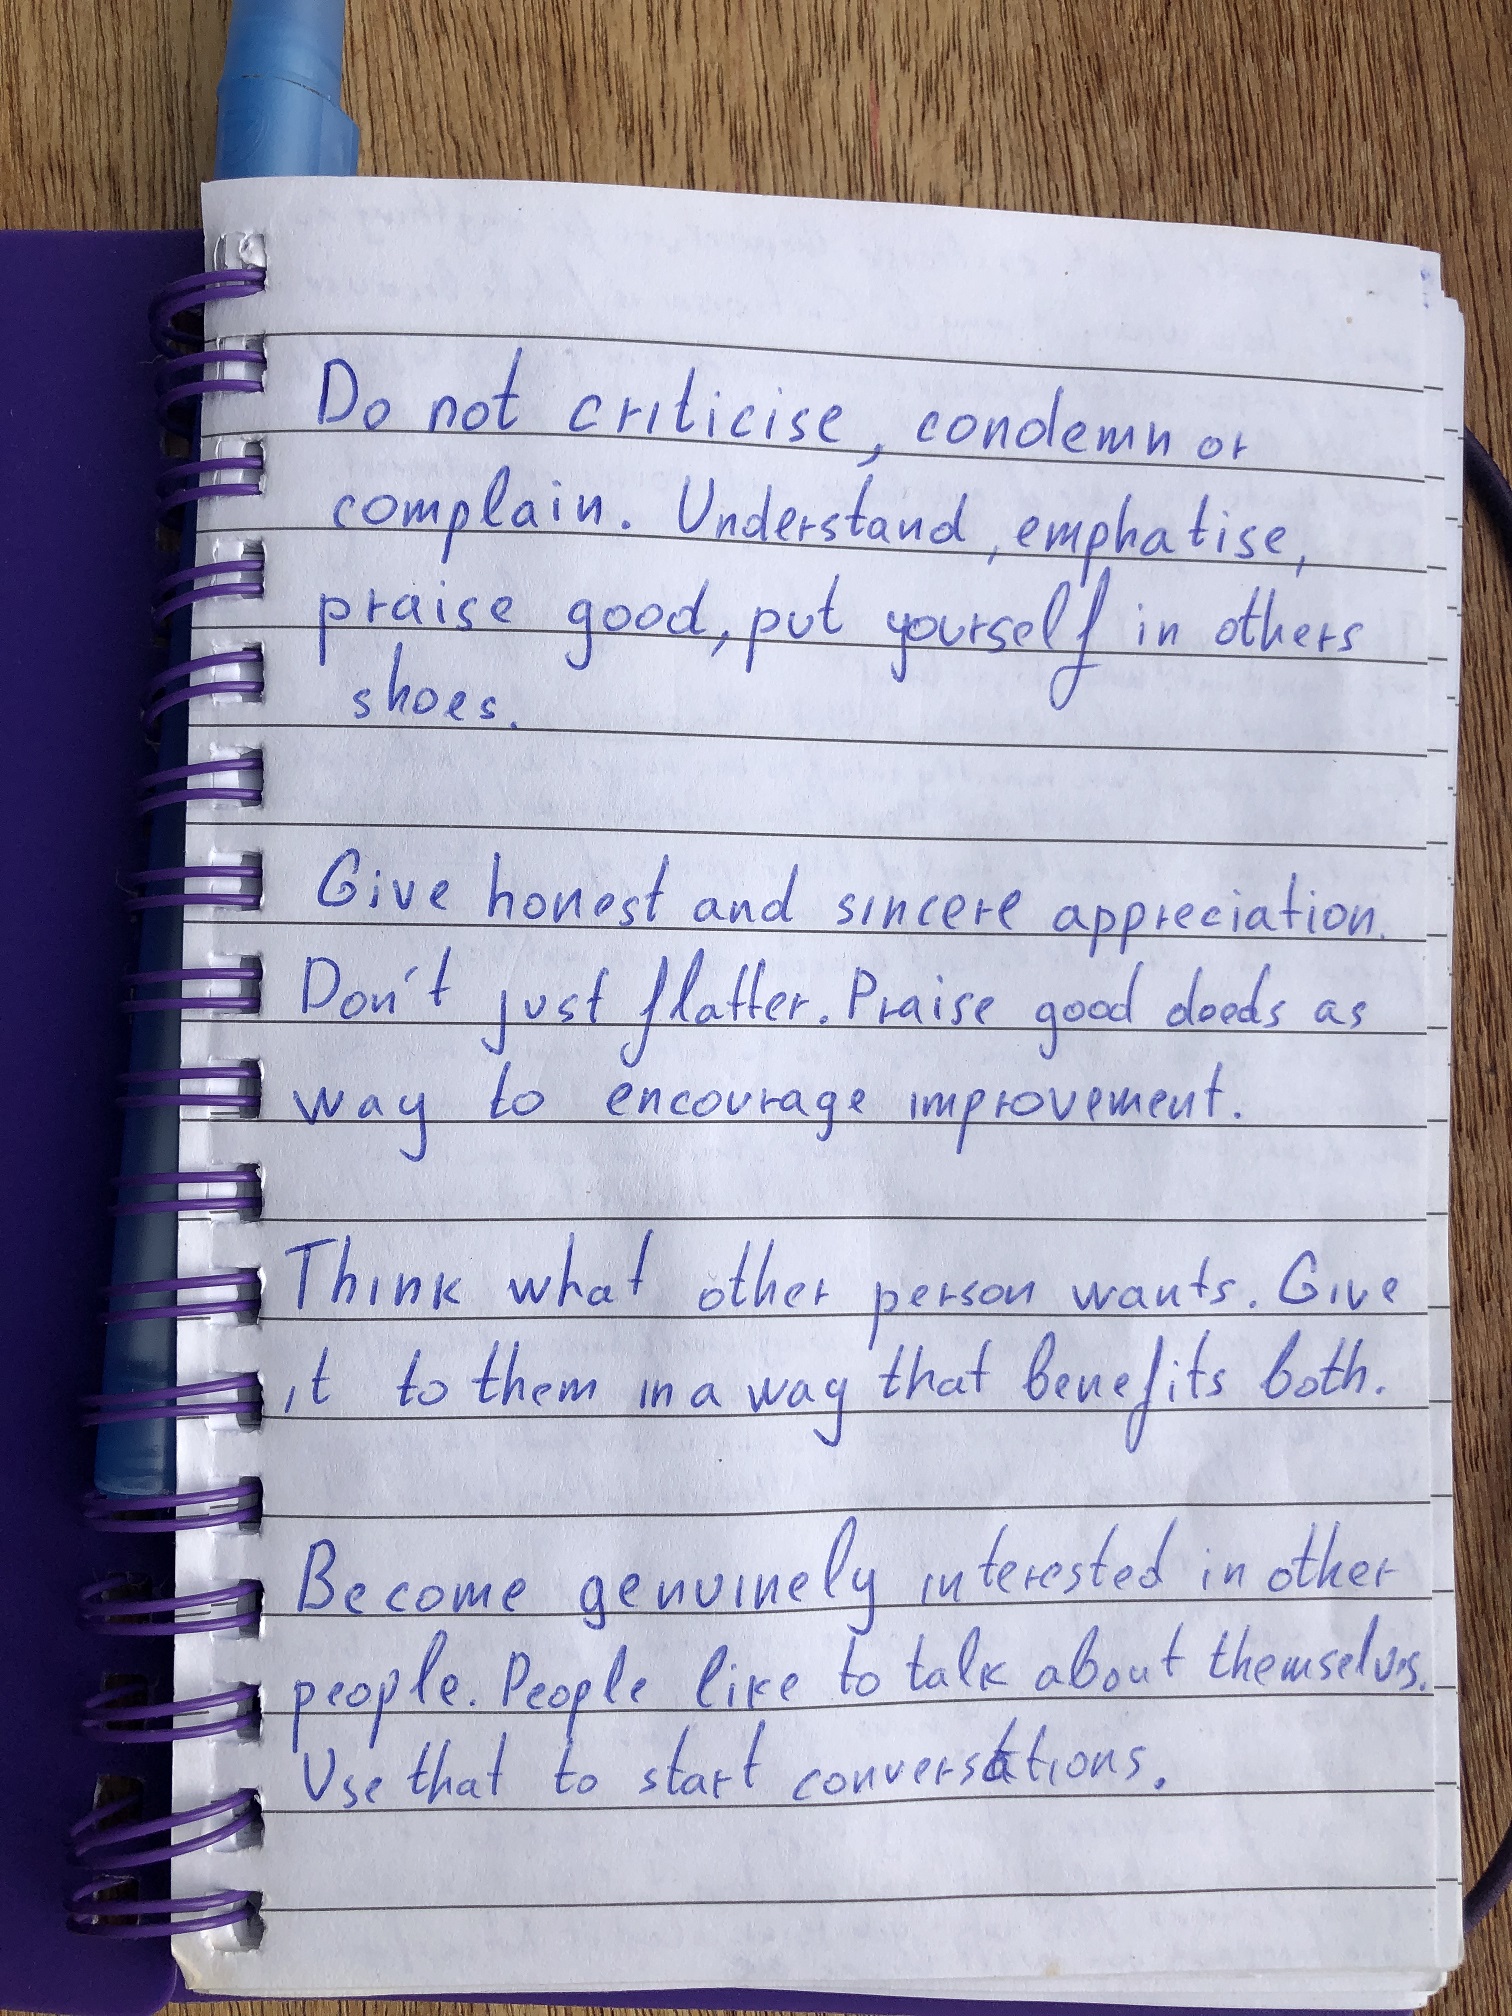 Do not criticise, condemn or
complain. Understand, emphatise,
praise good, put yourself in others
shoes.
Give honest and sincere appreciation.
Don't just flatter. Praise good deeds as
way to encourage improvement.
Think what other person wants. Give
it to them in a way that benefits both.
Become genuinely interested in other
people. People like to talk about themselves.
Use that to start conversations.